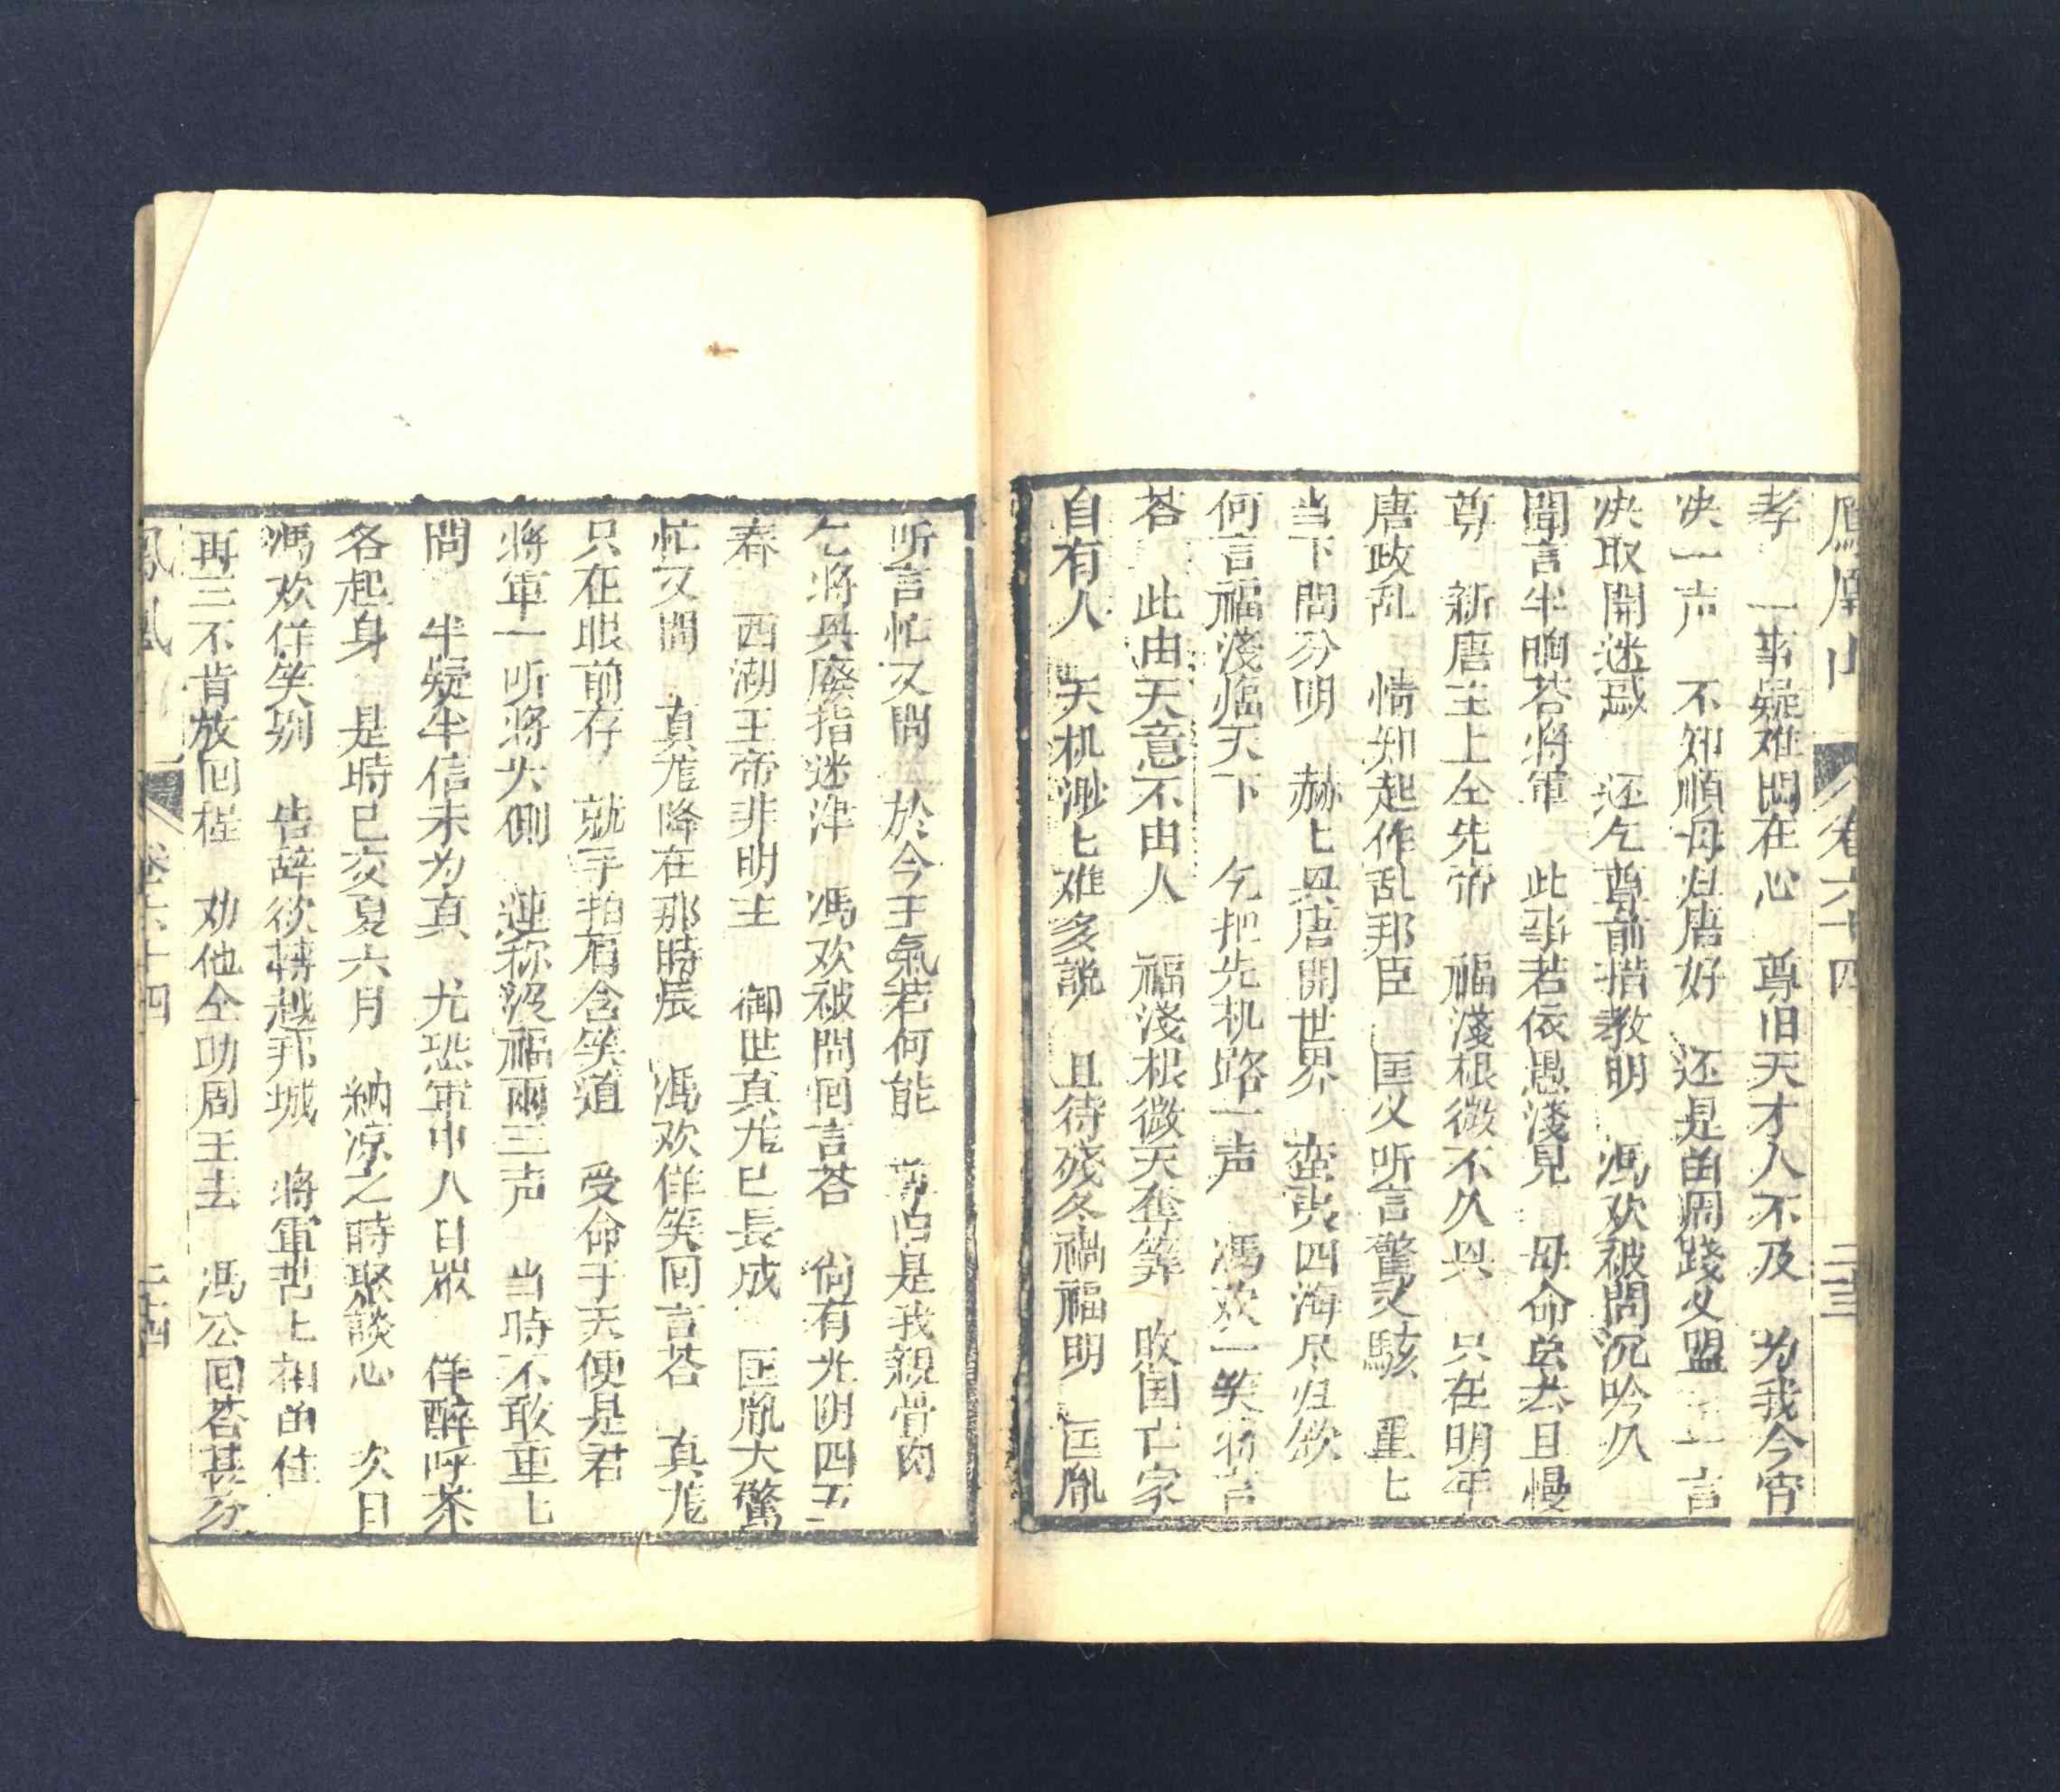 卷六十四 二十三
孝 一事疑难悶在心 尊旧天才人不及 为我今宵
决一声 不知順母归唐好 还是由周踐义盟 一言
决取開迷惑 还乞尊前指教明 馮欢被問沉吟久
聞言半晌荅将軍 此事若依愚淺見 母命虽去且慢
尊 新唐主上仝先帝 福淺根微不久興 只在明年
唐政乱 情知起作乱邦臣 匡义听言驚又駭 重七
当下問分明 赫七興唐開世界 蛮夷四海尽归欽
何言福淺临天下 乞把先机路一声 馮欢一笑将言
荅 此由天意不由人 福淺根微天奪筭 敗国亡家
自有人 天机渺七难多説 且待殘冬禍福明 匡胤
听言忙又問 於今王氣若何能 尊白是我親骨肉
乞将興廢指迷津 馮欢被問回言荅 尚有光明四五
春 西湖王帝非明主 御世真龙已長成 匡胤大驚
忙又問 真龙降在那時辰 馮欢佯笑回言荅 真龙
只在眼前存 就手拍肩含笑道 受命于天便是君
将軍一听将头側 連称没福兩三声 当時不敢重七
問 半疑半信未为真 尤恐軍中人目眾 佯醉呼茶
各起身 是時已亥夏六月 納凉之時聚談心 次日
馮欢佯笑别 告辞欲轉越邦城 将軍苦上相畄住
再三不肯放回程 劝他仝助周王去 馮公回荅甚分
鳳凰 卷六十四 二十四